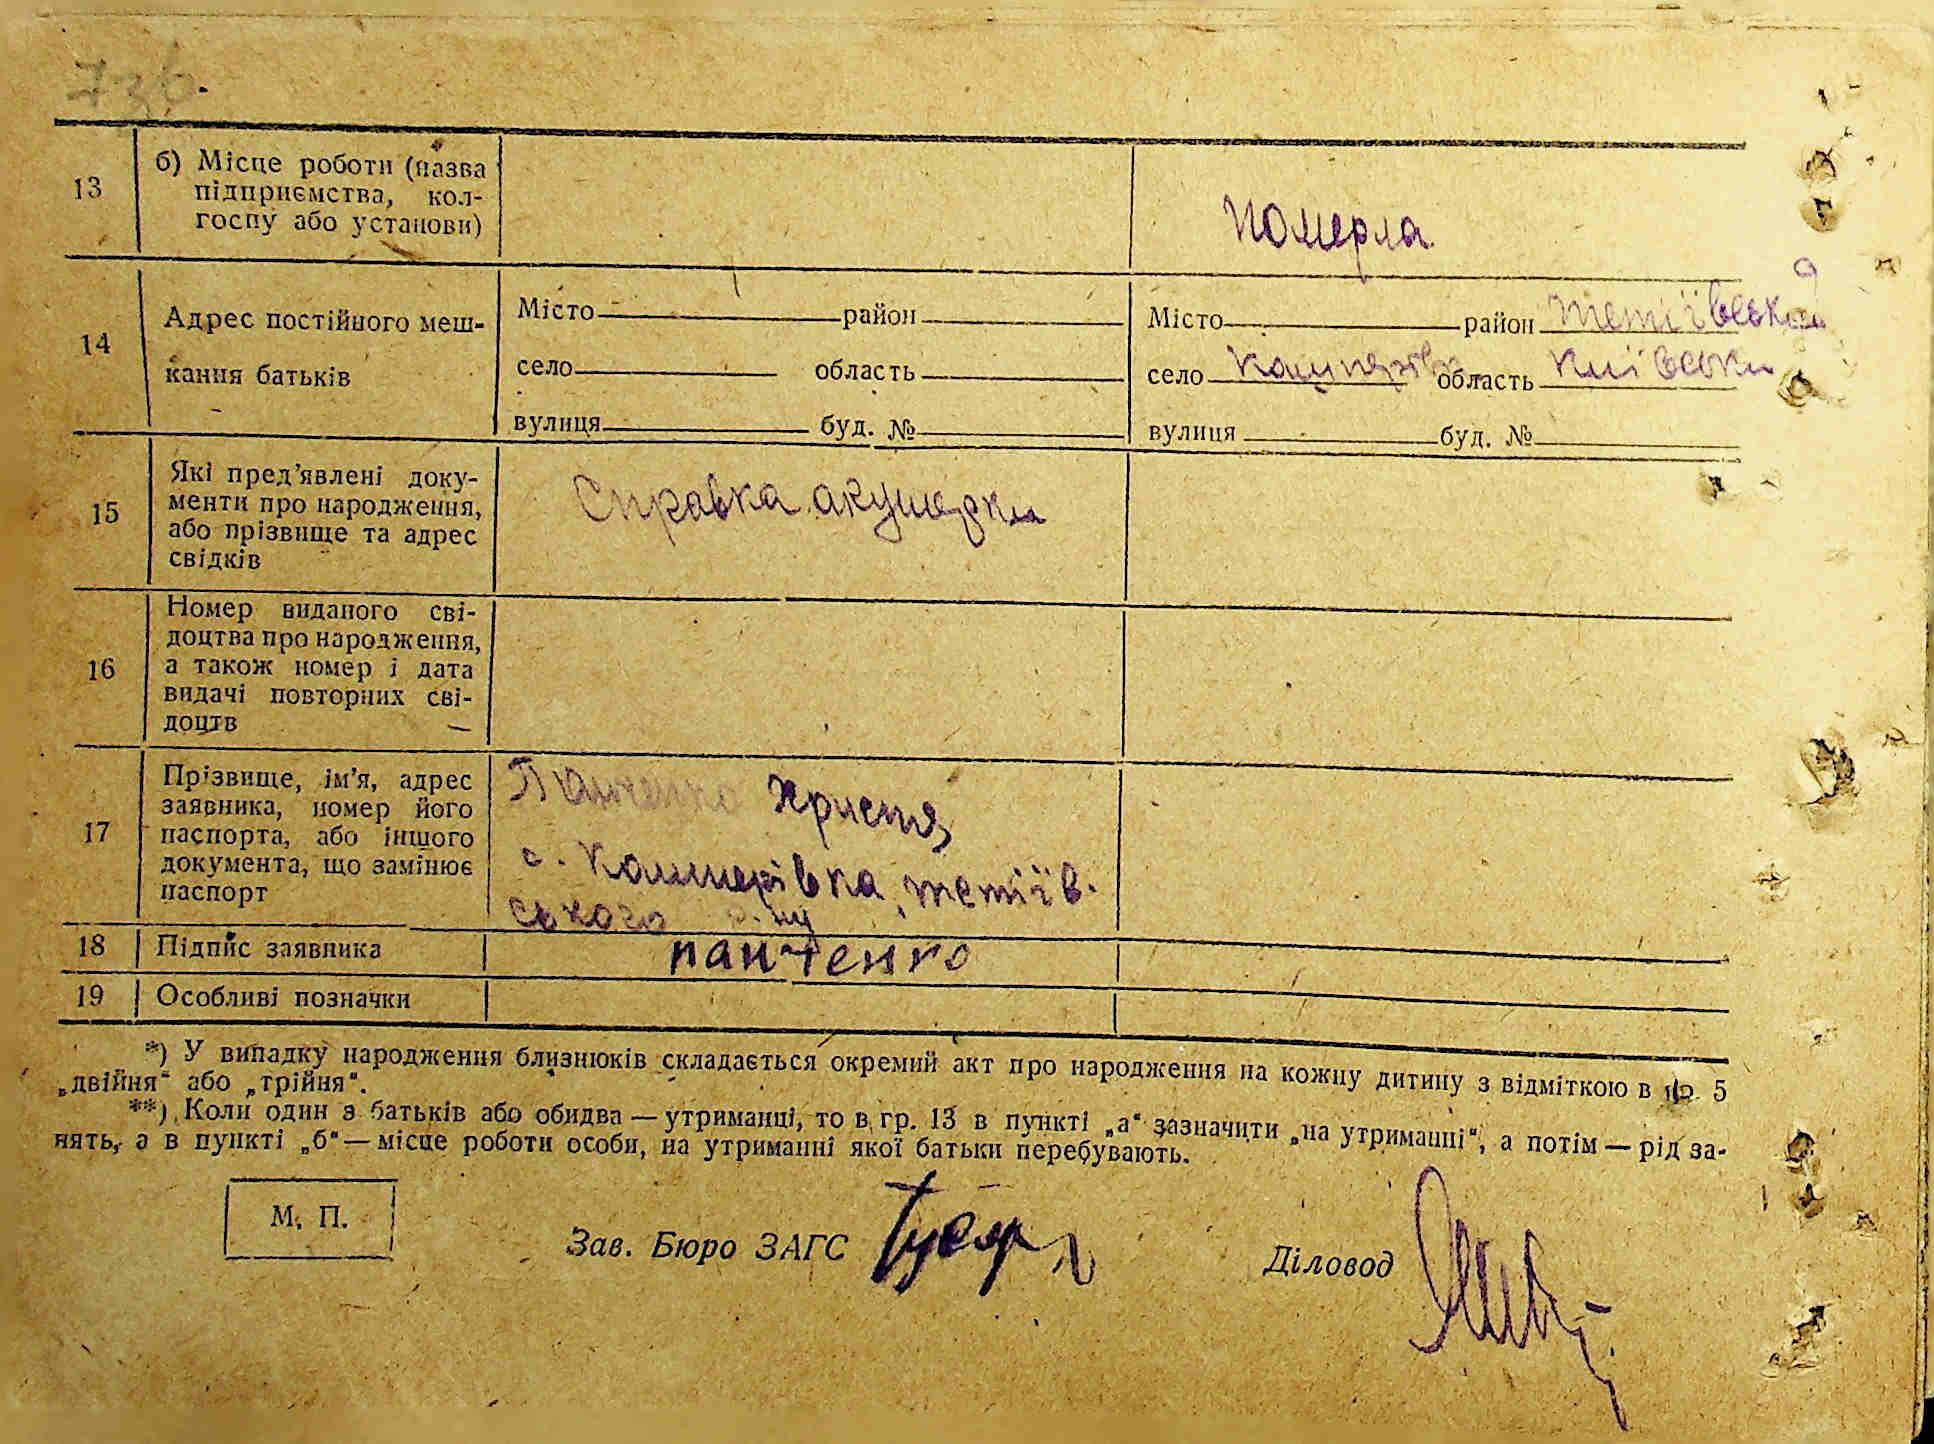 736.
13
б) Місце роботи (назва
підприємства, кол-
госпу або установи)
померла
14
Адрес постійного меш-
кання батьків
Місто район
село область
вулиця буд. №
Місто район Тетіївський
село Кашперівка область Київська
вулиця буд. №
15
Які пред'явлені доку-
менти про народження,
або прізвище та адрес
свідків
Справка акушерки
16
Номер виданого сві-
доцтва про народження,
а також номер і дата
видачі повторних сві-
доцтв
17
Прізвище, ім'я, адрес
заявника, номер його
паспорта, або іншого
документа, що замінює
паспорт
Панченко Христя,
с. Кашперівка, Тетіїв-
ського р-ну
18
Підпис заявника
панченко
19
Особливі позначки
*) У випадку народження близнюків складається окремий акт про народження на кожну дитину з відміткою в гр. 5
„двійня“ або „трійня“.
**) Коли один з батьків або обидва — утриманці, то в гр. 13 в пункті „а“ зазначити „на утриманні“, а потім — рід за-
нять, а в пункті „б“ — місце роботи особи, на утриманні якої батьки перебувають.
М. П.
Зав. Бюро ЗАГС
Діловод